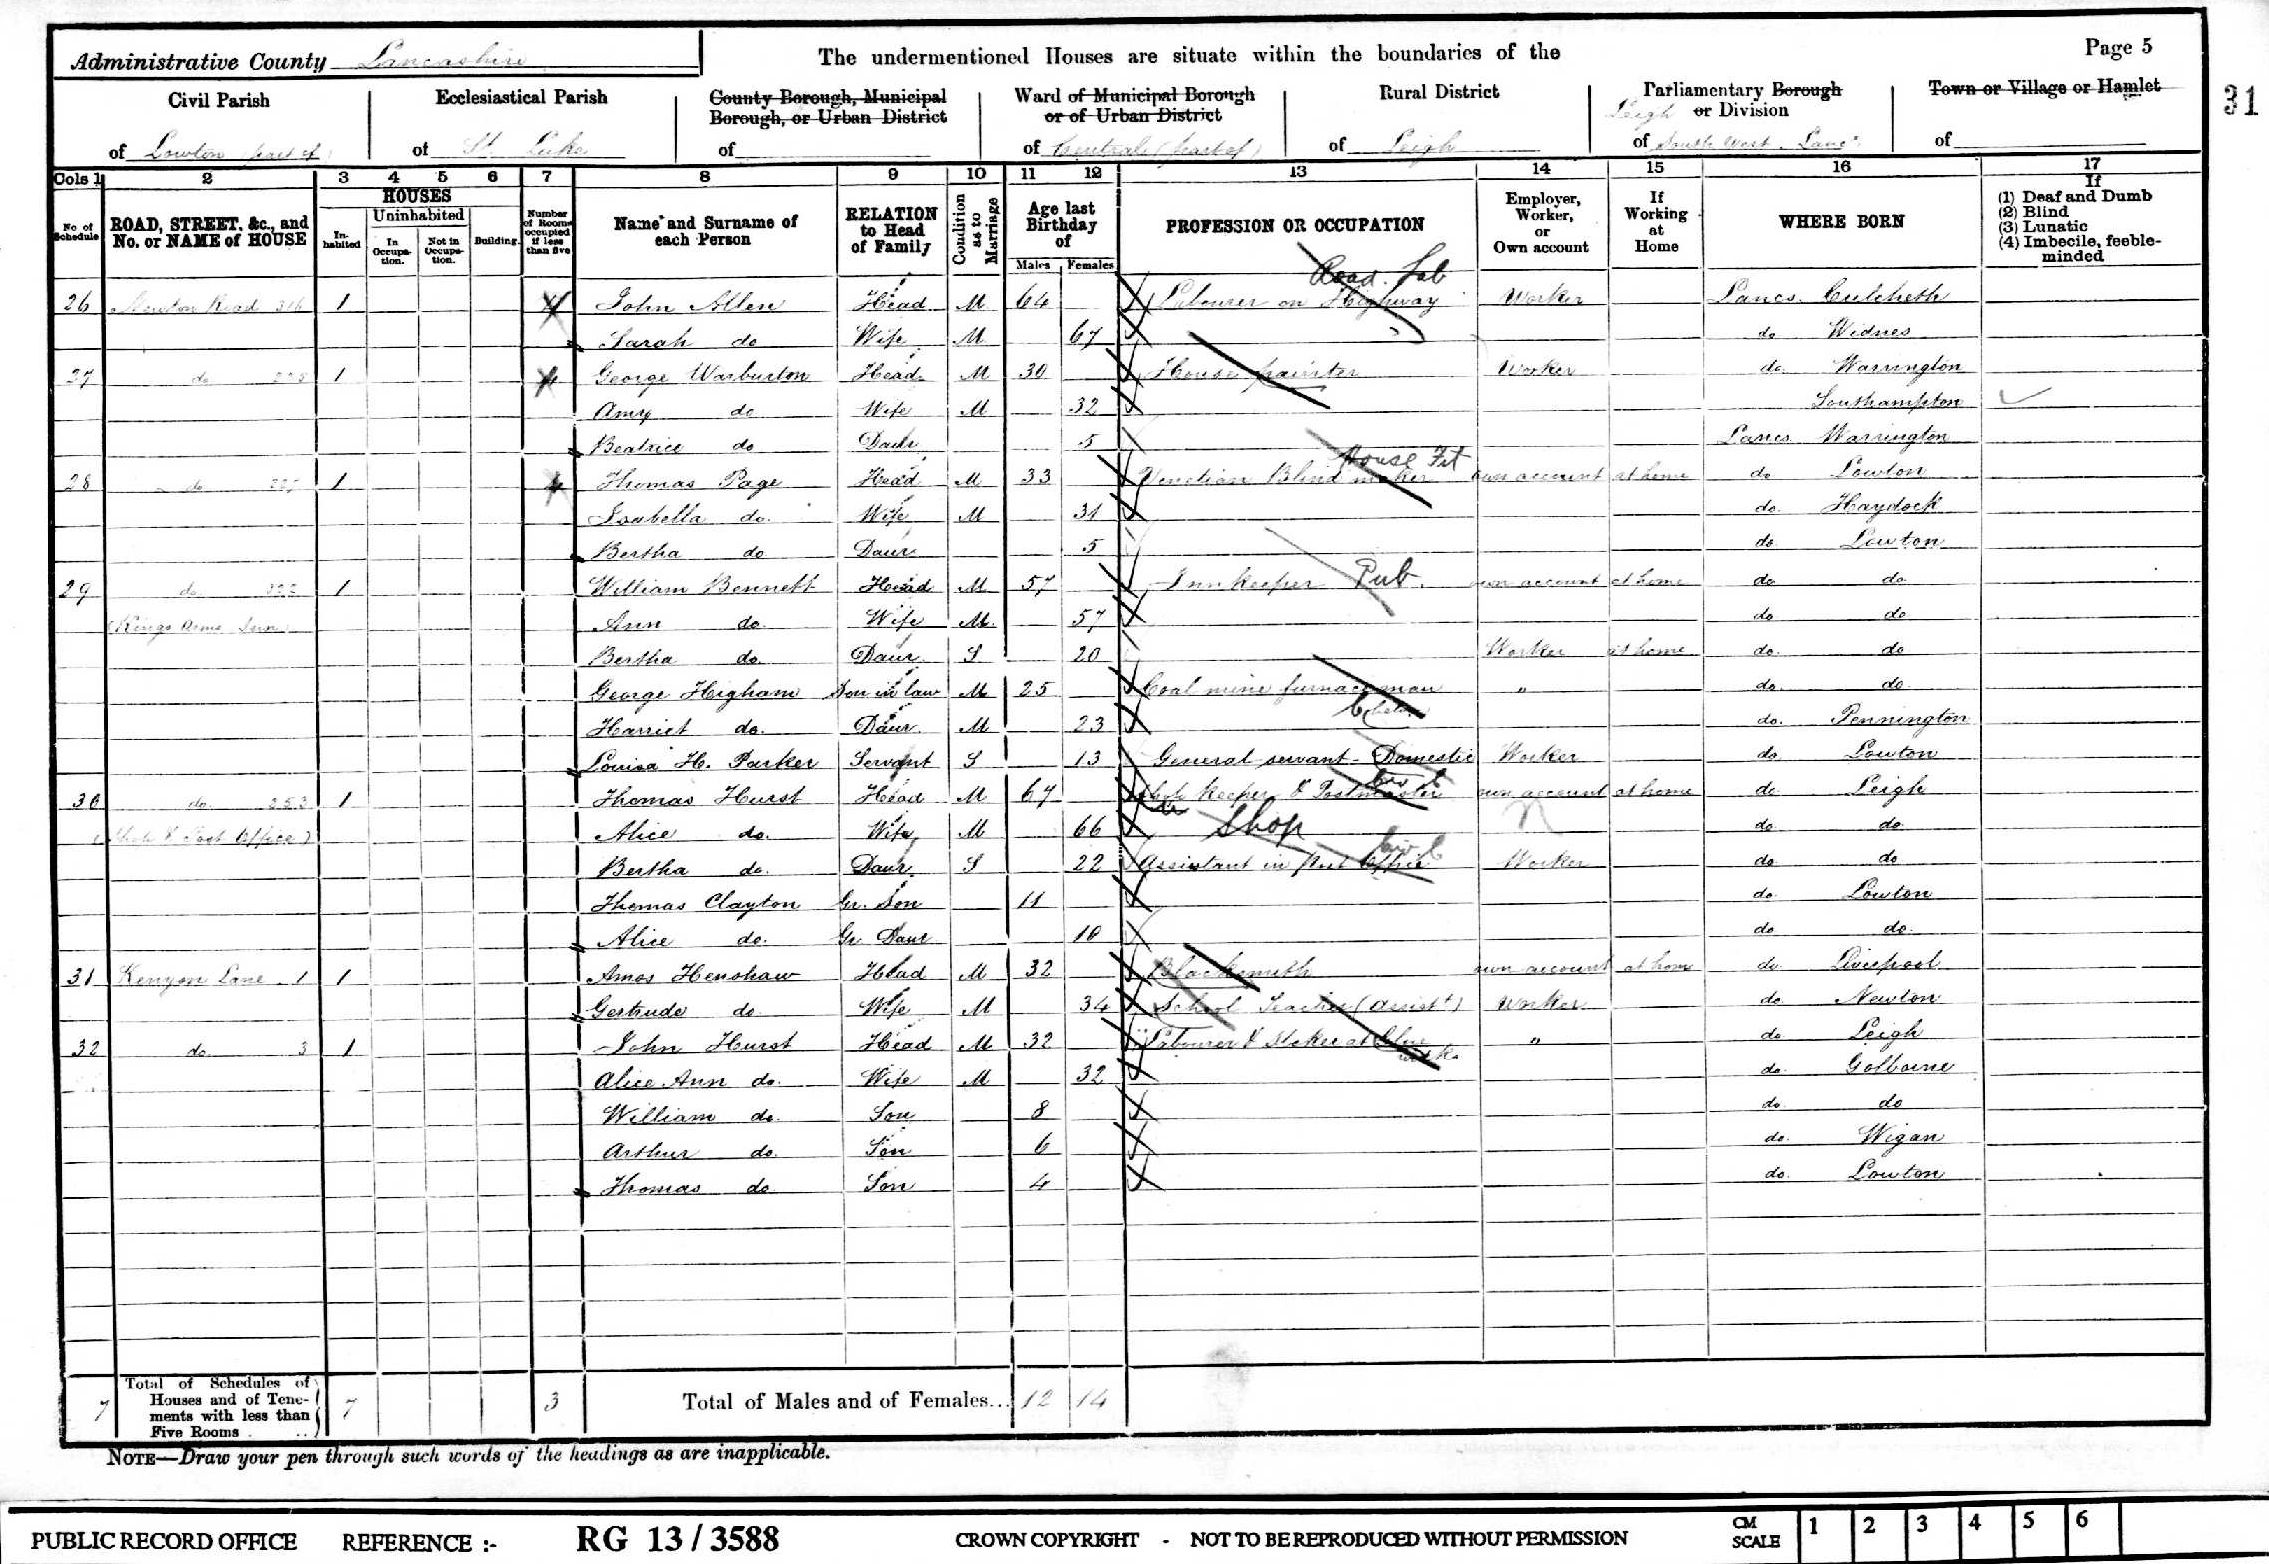 Administrative County Lancashire
The undermentioned Houses are situate within the boundaries of the
Page 5
31
Civil Parish
of Lowton (part of)
Ecclesiastical Parish
of St. Luke
County Borough, Municipal
Borough, or Urban District
of
Ward of Municipal Borough
or of Urban District
of Central (part of)
Rural District
of Leigh
Parliamentary Borough
Leigh or Division
of South West Lanc
Town or Village or Hamlet
of
Cols 1 2 3 4 5 6 7 8 9 10 11 12 13 14 15 16 17
No. of Schedule
ROAD, STREET, &c., and No. or NAME of HOUSE
HOUSES
Inhabited
Uninhabited
In Occupation.
Not in Occupation.
Building
Number of Rooms occupied if less than five
Name and Surname of each Person
RELATION to Head of Family
Condition as to Marriage
Age last Birthday of
Males Females
PROFESSION OR OCCUPATION
Employer, Worker, or Own account
If Working at Home
WHERE BORN
If
(1) Deaf and Dumb
(2) Blind
(3) Lunatic
(4) Imbecile, feeble-minded
Road. Lab
26 Newton Road 1 4 John Allen Head M 64 Labourer on Highway Worker Lancs. Culcheth
Sarah do Wife M 67 do Widnes
27 do 1 4 George Warburton Head M 30 House painter Worker do Warrington
Amy do Wife M 32 Southampton
Beatrice do Daur 5 Lancs Warrington
House Fit
28 do 1 4 Thomas Page Head M 33 Venetian Blind maker own account at home do Lowton
Isabella do. Wife M 31 do. Haydock
Bertha do Daur 5 do. Lowton
29 do 1 William Bennett Head M 57 Innkeeper Pub. own account at home do do
(Kings Arms Inn) Ann do Wife M. 57 do do
Bertha do. Daur. S 20 Worker at home do. do
George Higham Son in law M 25 Coal mine furnaceman " do. do.
Harriet do. Daur. M 23 do. Pennington
Louisa H. Parker Servant S 13 General servant - Domestic Worker do Lowton
30 do. 253 1 Thomas Hurst Head M 67 keeper & Postmaster own account at home do Leigh
& Post Office) Alice do. Wife M 66 Shop do do
Bertha do. Daur. S 22 Assistant in Post Office Worker do do
Thomas Clayton Gr. Son 11 do. Lowton
Alice do. Gr Daur 10 do do.
31 Kenyon Lane 1 1 Amos Henshaw Head M 32 Blacksmith own account at home do Liverpool
Gertrude do Wife M 34 School Teacher (Assist) Worker do. Newton
32 do. 3 1 John Hurst Head M 32 Labourer & Stoker at works " do Leigh
Alice Ann do. Wife M 32 do. Golborne
William do. Son 8 do. do
Arthur do. Son 6 do. Wigan
Thomas do Son 4 do. Lowton
7 Total of Schedules of Houses and of Tenements with less than Five Rooms .. 7 3 Total of Males and of Females... 12 14
NOTE—Draw your pen through such words of the headings as are inapplicable.
PUBLIC RECORD OFFICE REFERENCE :- RG 13 / 3588 CROWN COPYRIGHT - NOT TO BE REPRODUCED WITHOUT PERMISSION CM SCALE 1 2 3 4 5 6